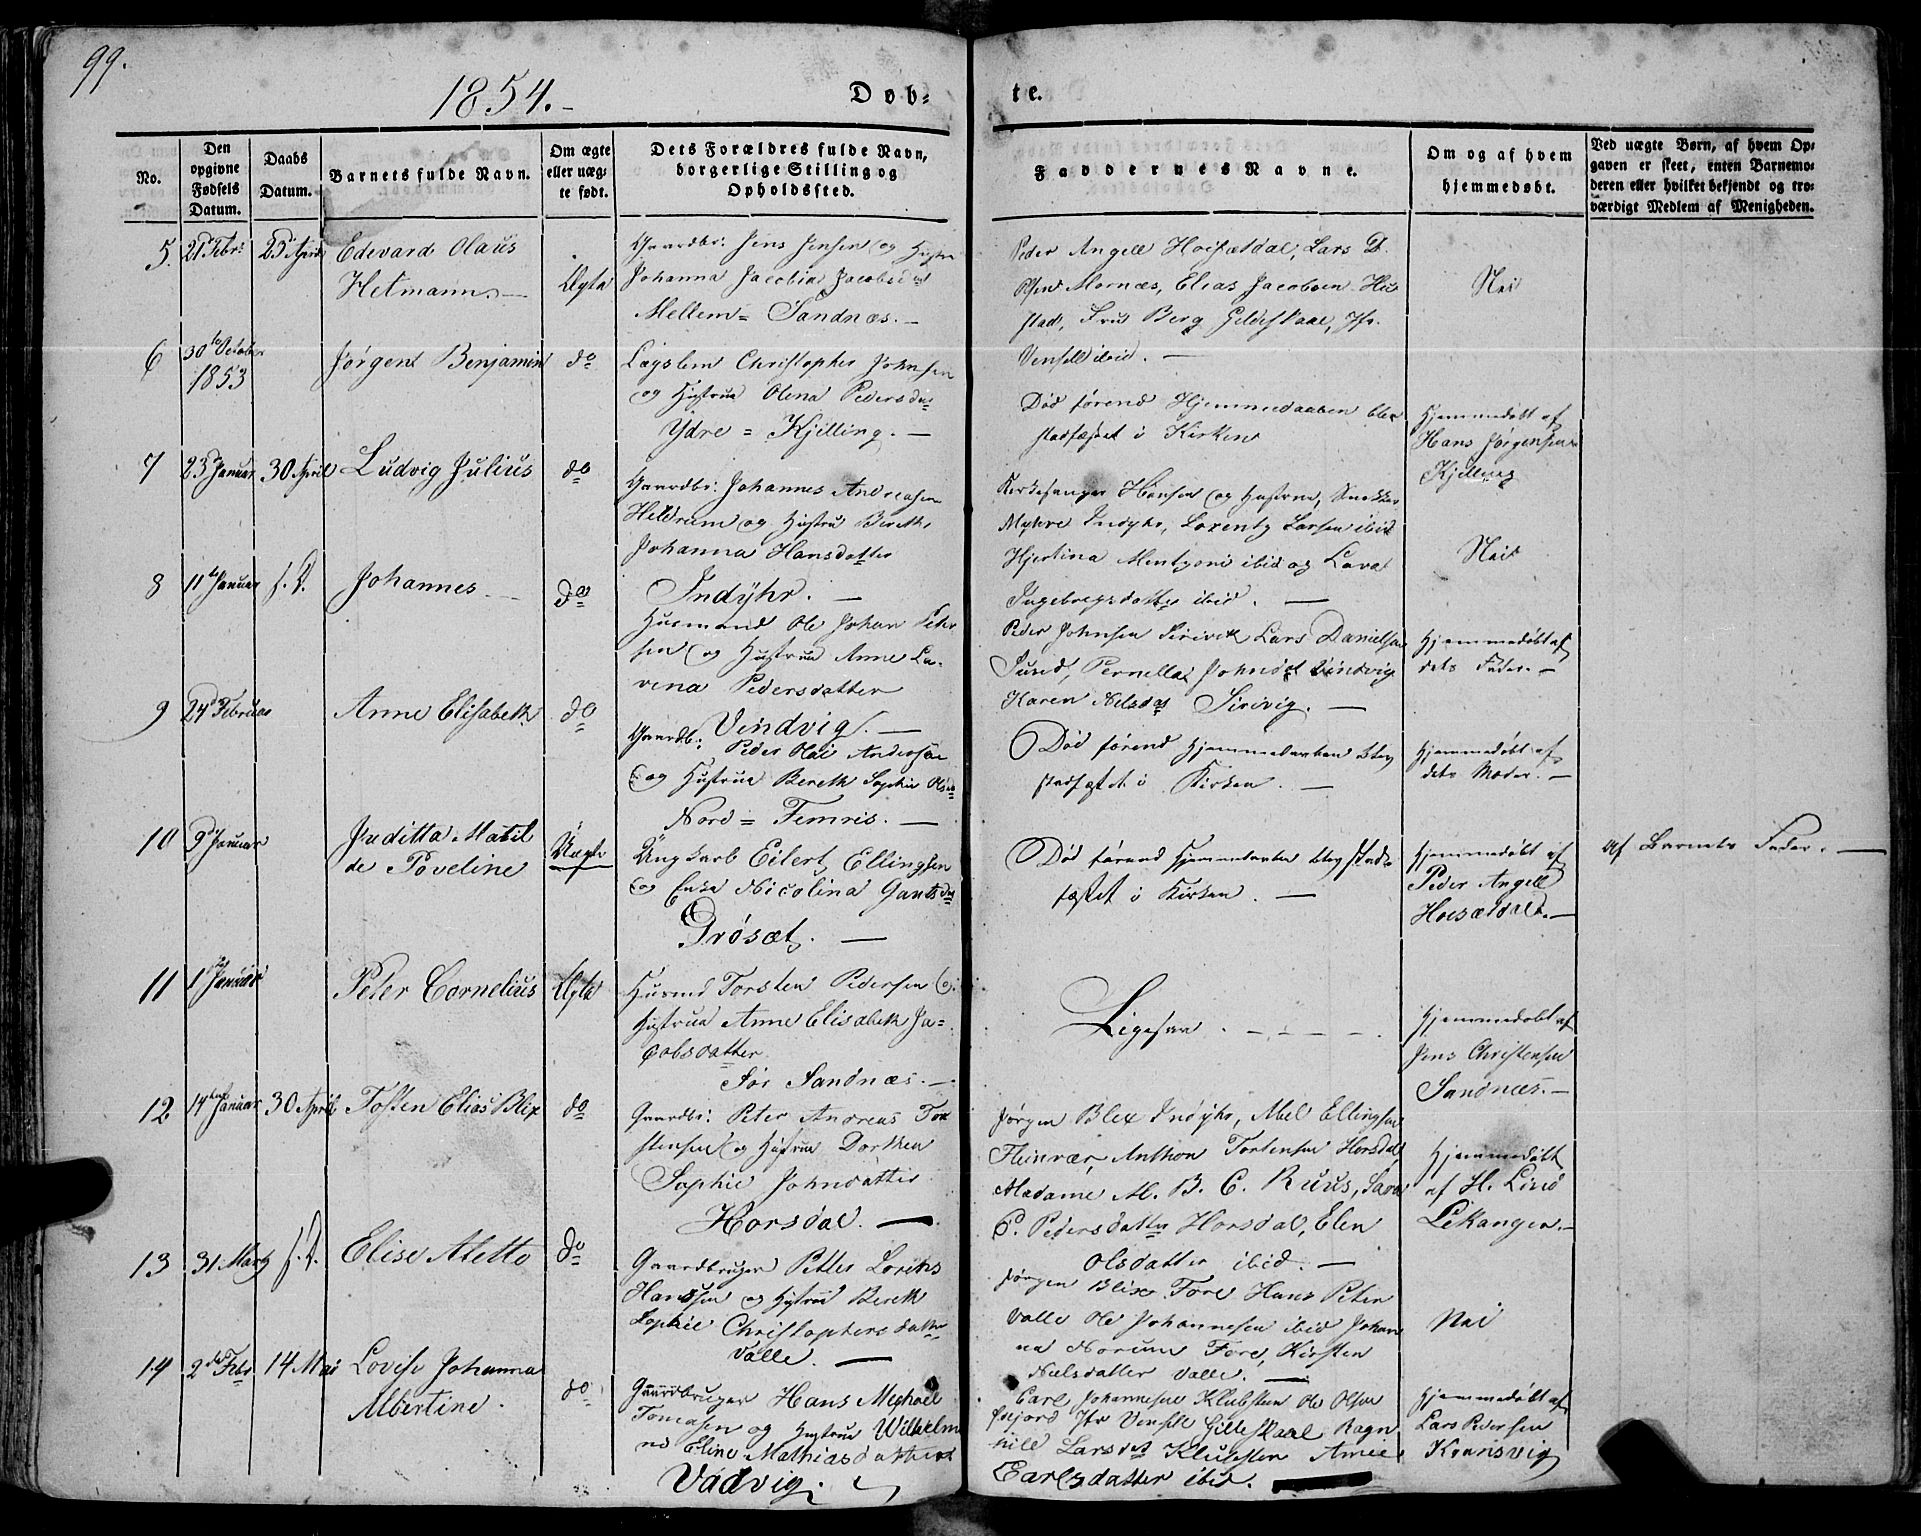 99.
1854.
Døb-
te.
No.
Den opgivne Fødsels Datum.
Daabs Datum.
Barnets fulde Navn.
Om ægte eller uægte født.
Dets Forældres fulde Navn, borgerlige Stilling og Opholdssted.
Faddernes Navne.
Om og af hvem hjemmedøbt.
Ved uægte Børn, af hvem Opgaven er skeet, enten Barnemoderen eller hvilket bekjendt og troværdigt Medlem af Menigheden.
5.
21 Febr:
23 April
Edevard Olaus
Hetmann.
Ægte
Gaardbr: Jens Jensen og Hustru
Johanna Jacobia Jacobsdat
Mellem = Sandnæs.
Peder Angell Hoisætdal, Lars D.
Olsen Mornæs, Elias Jacobsen
stad, Fru Berg Gildeskaal, Jfr.
Vensell ibid.
Nei
6
30te October
1853
Jørgen Benjamin
do
Lægslem Christopher Johnsen
og Hustrue Olena Pedersdat
Ydre = Kjelling.
Død førend Hjemmedaaben blev
stadfæstet i Kirken
Hjemmedøbt af
Hans Jørgensen
Kjelling
7
23 Januar
30 April
Ludvig Julius
do
Gaardbr: Johannes Andreasen
Heldrum og Hustru Bereth
Johanna Hansdatter
Indyhr.
Kirkesanger Hansen og Hustrue, Snekker
Myhre Indyhr, Lorentz Larsen ibid
Hjertina Mentzoni ibid og Lava
Ingebregsdatter ibid.
Nei
8
11te Januar
s. D.
Johannes
do
Husmand Ole Johan Peter
sen og Hustrue Anne La-
vina Pedersdatter
Vindvig.
Peder Johnsen Sirivik Lars Danielsen
Sund, Pernella Johnsdat Vindvig
Karen Nilsdat Sirivig.
Hjemmedøbt af
dets Fader.
9
24de Februar
Anne Elisabeth
do
Gaardb: Peder Olai Andersen
og Hustrue Bereth Sophie Olsdat
Nord = Femris.
Død førend Hjemmedaaben blev
stadfæstet i Kirken.
Hjemmedøbt af
dets Moder.
10
9 Januar
Juditta Matil
de Poveline
Uægte
Ungkarl Eilert Ellingsen
og Enke Nicolina Gantsdat
Prøsæt.
Død førend Hjemmedaaben blev stad-
fæstet i Kirken.
Hjemmedøbt af
Peder Angell
Hoisætdal.
af Barnets Fader.
11
1ste Januar
Peter Cornelius
Ægte
Husmd Torsten Pedersen og
Hustrue Anne Elisabeth Ja-
cobsdatter
Sør Sandnæs.
Ligesaa.
Hjemmedøbt af
Jens Christensen
Sandnæs.
12
14de Januar
30 April
Tosten Elias Blix
do
Gaardbr: Peter Andreas Tor
stensen og Hustrue Dorthea
Sophie Johnsdatter
Horsdal.
Jørgen Blix Indyhr, Abel Ellingsen
Fleinvær, Anthon Tostensen Horsdal,
Madame M. B. C. Ruus, Sara
P. Pedersdatter Horsdal, Elen
Olsdatter ibid.
Hjemmedøbt
af H. Lind
Lekanger.
13
31 Marts
s. D.
Elise Aletto
do
Gaardbruger Petter Lorents
Hanssen og Hustrue Bereth
Sophie Christophersdatter
Valle.
Jørgen Blix Fore, Hans Peter
Valle Ole Johannesen ibid Johan
na Norum Fore, Kirsten
Nielsdatter Valle.
Nei
14
2den Febr
14 Mai
Lovise Johanna
Albertine.
do
Gaardbruger Hans Michael
Tomasen og Hustrue Wilhelmi
na Eline Mathiasdatter
Vadvig.
Carl Johannesen Klubsten Ole Olsen
Jfr Vensell Gilleskaal Ragn
hild Larsdat Klubsten
Carlsdatter ibid.
Hjemmedøbt af
Lars Pedersen
Kvansvig